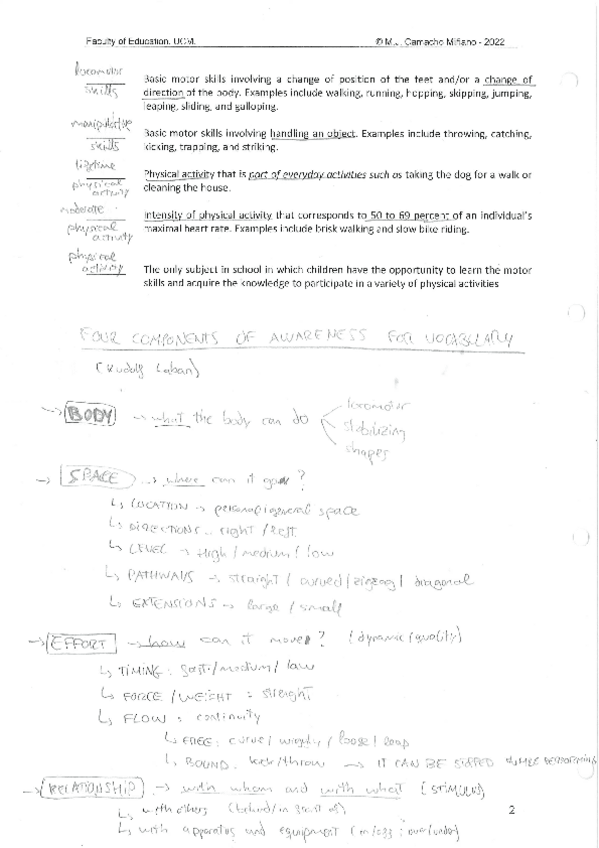 Faculty of Education. UCM. © M.J. Camacho Miñano - 2022
locomotor
skills
Basic motor skills involving a change of position of the feet and/or a change of
direction of the body. Examples include walking, running, hopping, skipping, jumping,
leaping, sliding, and galloping.
manipulative
skills
Basic motor skills involving handling an object. Examples include throwing, catching,
kicking, trapping, and striking.
lifetime
physical
activity
Physical activity that is part of everyday activities such as taking the dog for a walk or
cleaning the house.
moderate
physical
activity
Intensity of physical activity that corresponds to 50 to 69 percent of an individual's
maximal heart rate. Examples include brisk walking and slow bike riding.
physical
activity
The only subject in school in which children have the opportunity to learn the motor
skills and acquire the knowledge to participate in a variety of physical activities
FOUR COMPONENTS OF AWARENESS FOR VOCABULARY
(Rudolf Laban)
→ BODY → what the body can do
locomotor
stabilizing
shapes
→ SPACE → where can it go?
↳ LOCATION → personal/general space
↳ DIRECTIONS.. right/left
↳ LEVEL → High/medium/low
↳ PATHWAYS → straight/curved/zigzag/diagonal
↳ EXTENSIONS → large/small
→ EFFORT → how can it move? (dynamic/quality)
↳ TIMING: fast/medium/low
↳ FORCE/WEIGHT = strenght
↳ FLOW = continuity
↳ FREE: curve/wiggly/loose/leap
↳ BOUND: kick/throw → IT CAN BE
→ RELATIONSHIP → with whom and with what (STIMULUS)
↳ with others (behind/in front of)
↳ with apparatus and equipment (over/under)
2